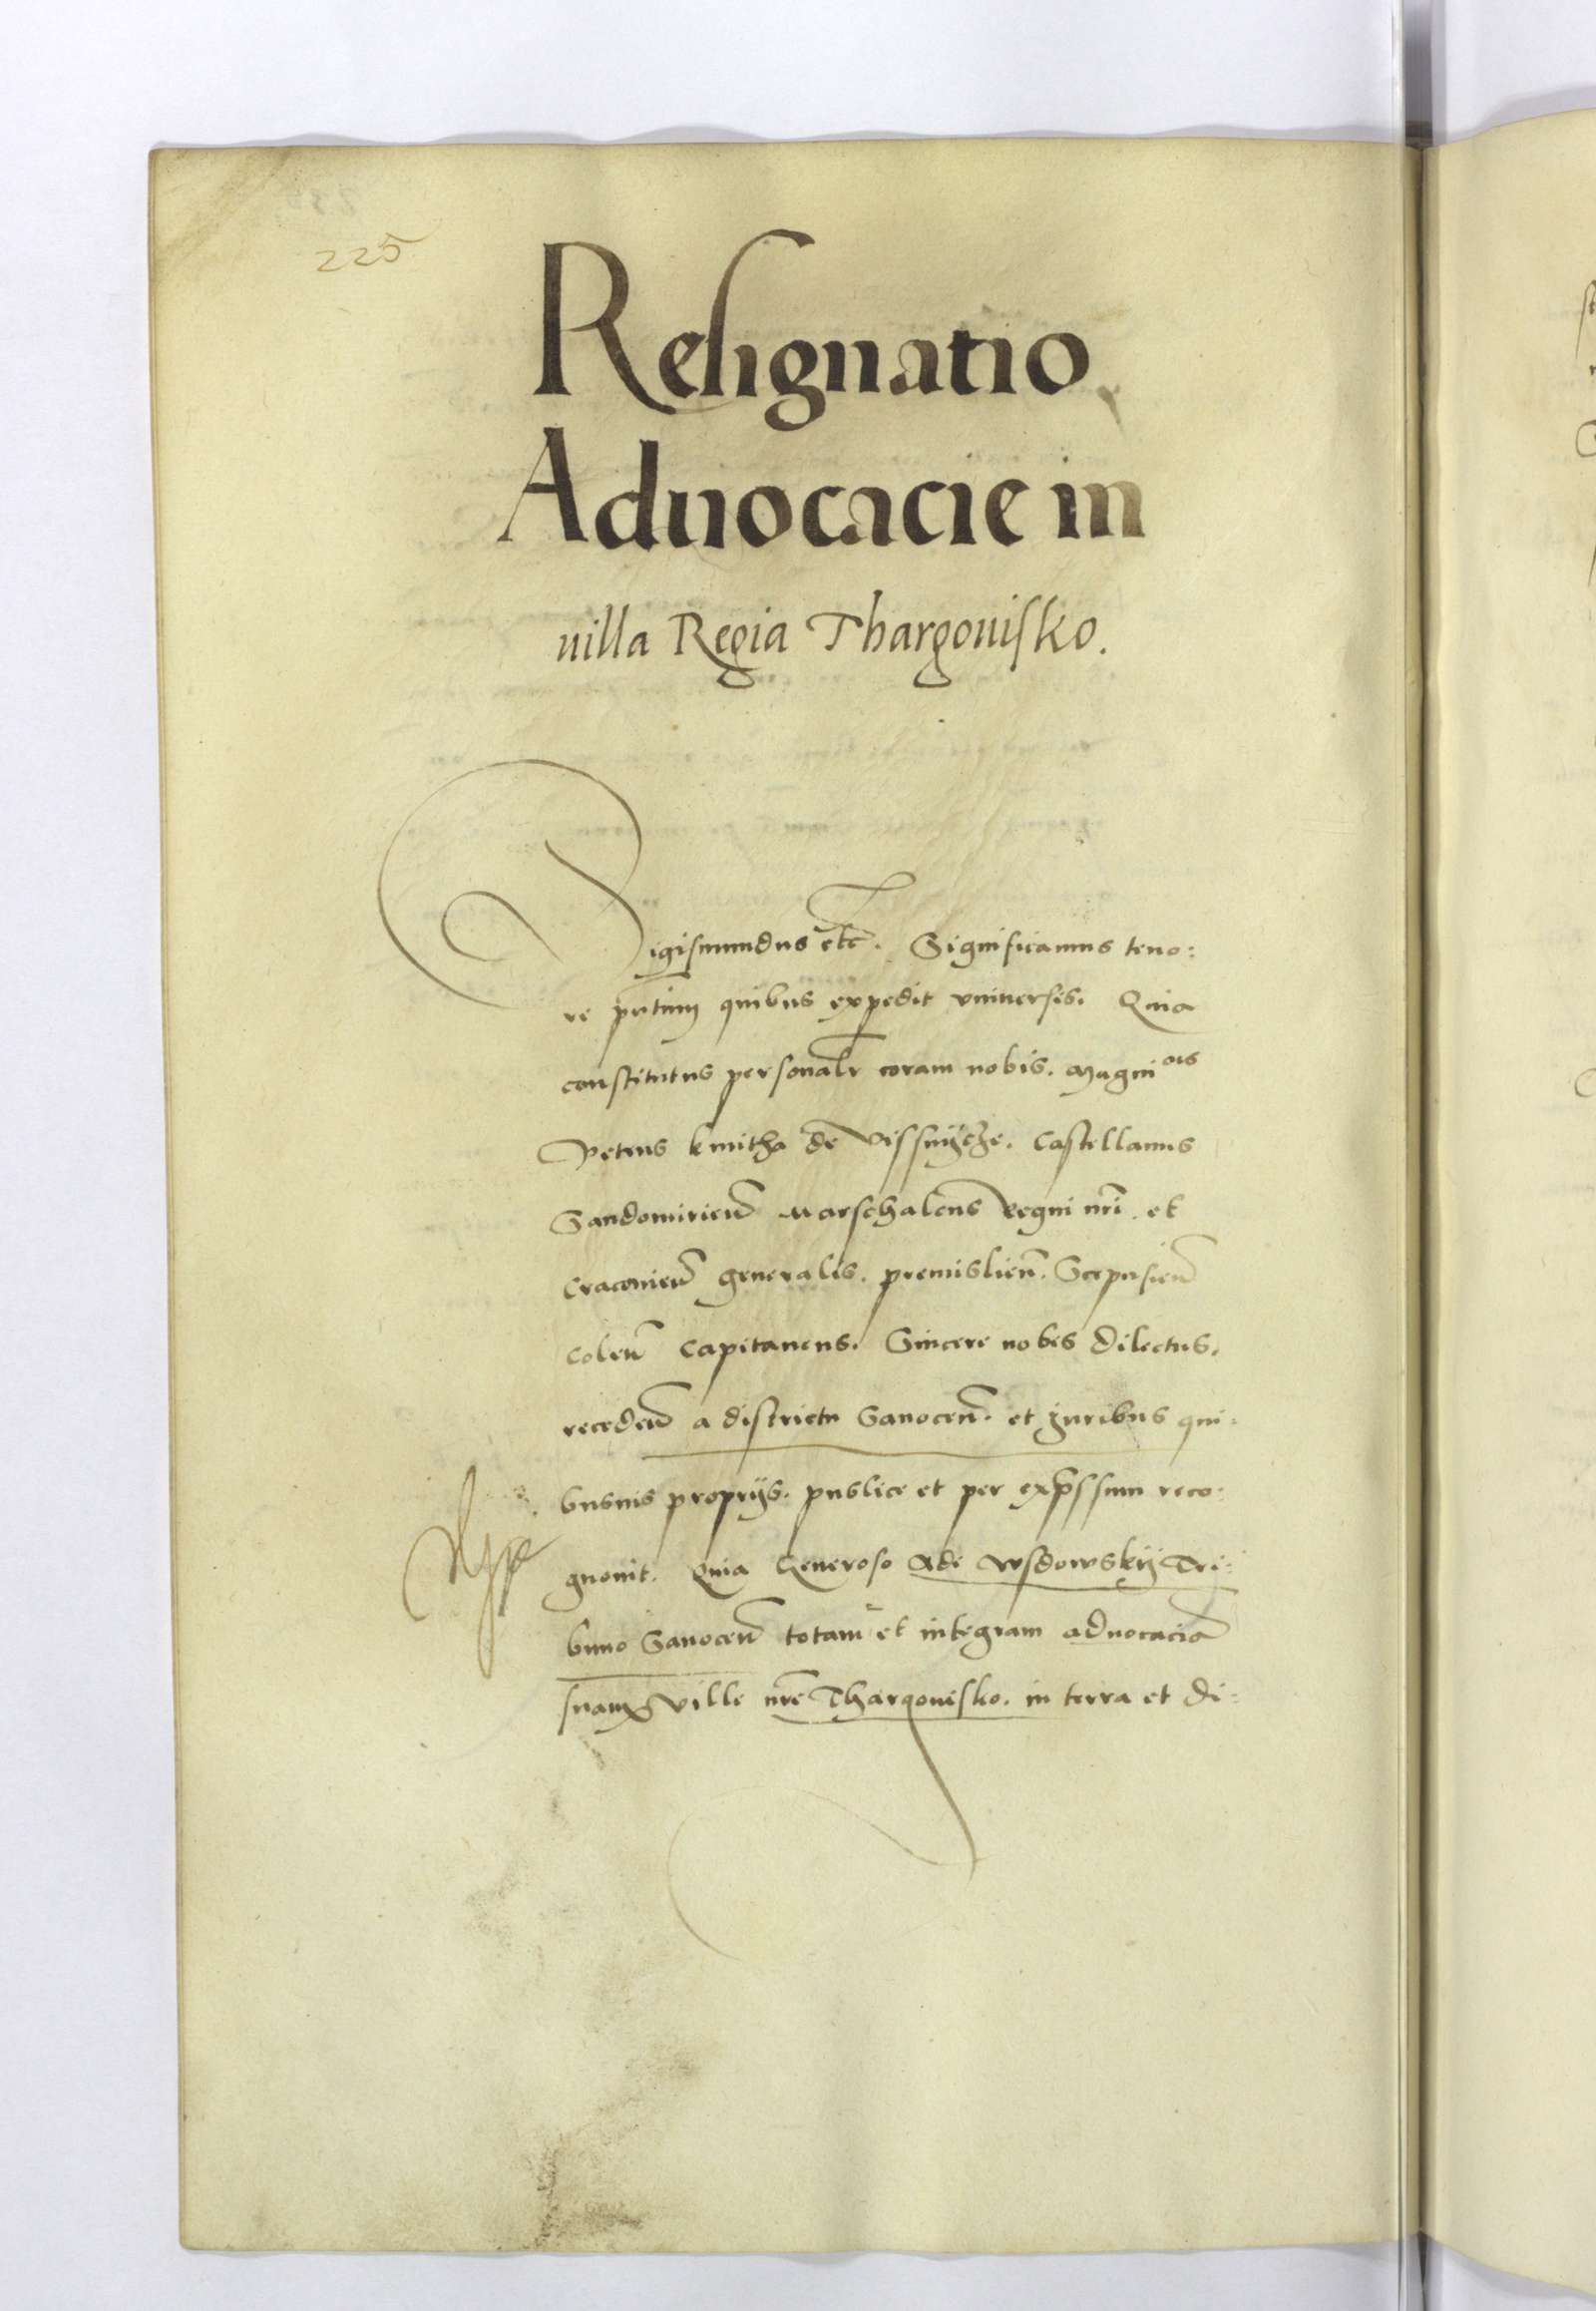 225
Resignatio
Aduocacie in
uilla Regia Thargouisko.
Sigismundus etc. Significamus teno:
re pntium quibus expedit vniuersis. Quia
constitutus personalr coram nobis. Magnicus
Petrus kmitha de Vissnycze. Castellanus
Sandomirien Marschalcus Regni nri et
Cracouien generalis. premislien. Scepusien
Colen Capitaneus. Sincere nobis dilectus.
recedens a districtu Sanocen. et Juribus qui:
busuis proprijs. publice et per exprssum reco:
gnouit. Quia Generoso Ade Wsdowskij Tri:
buno Sanocen totam et integram aduocacia
suam Ville nre Thargouisko. in terra et di: